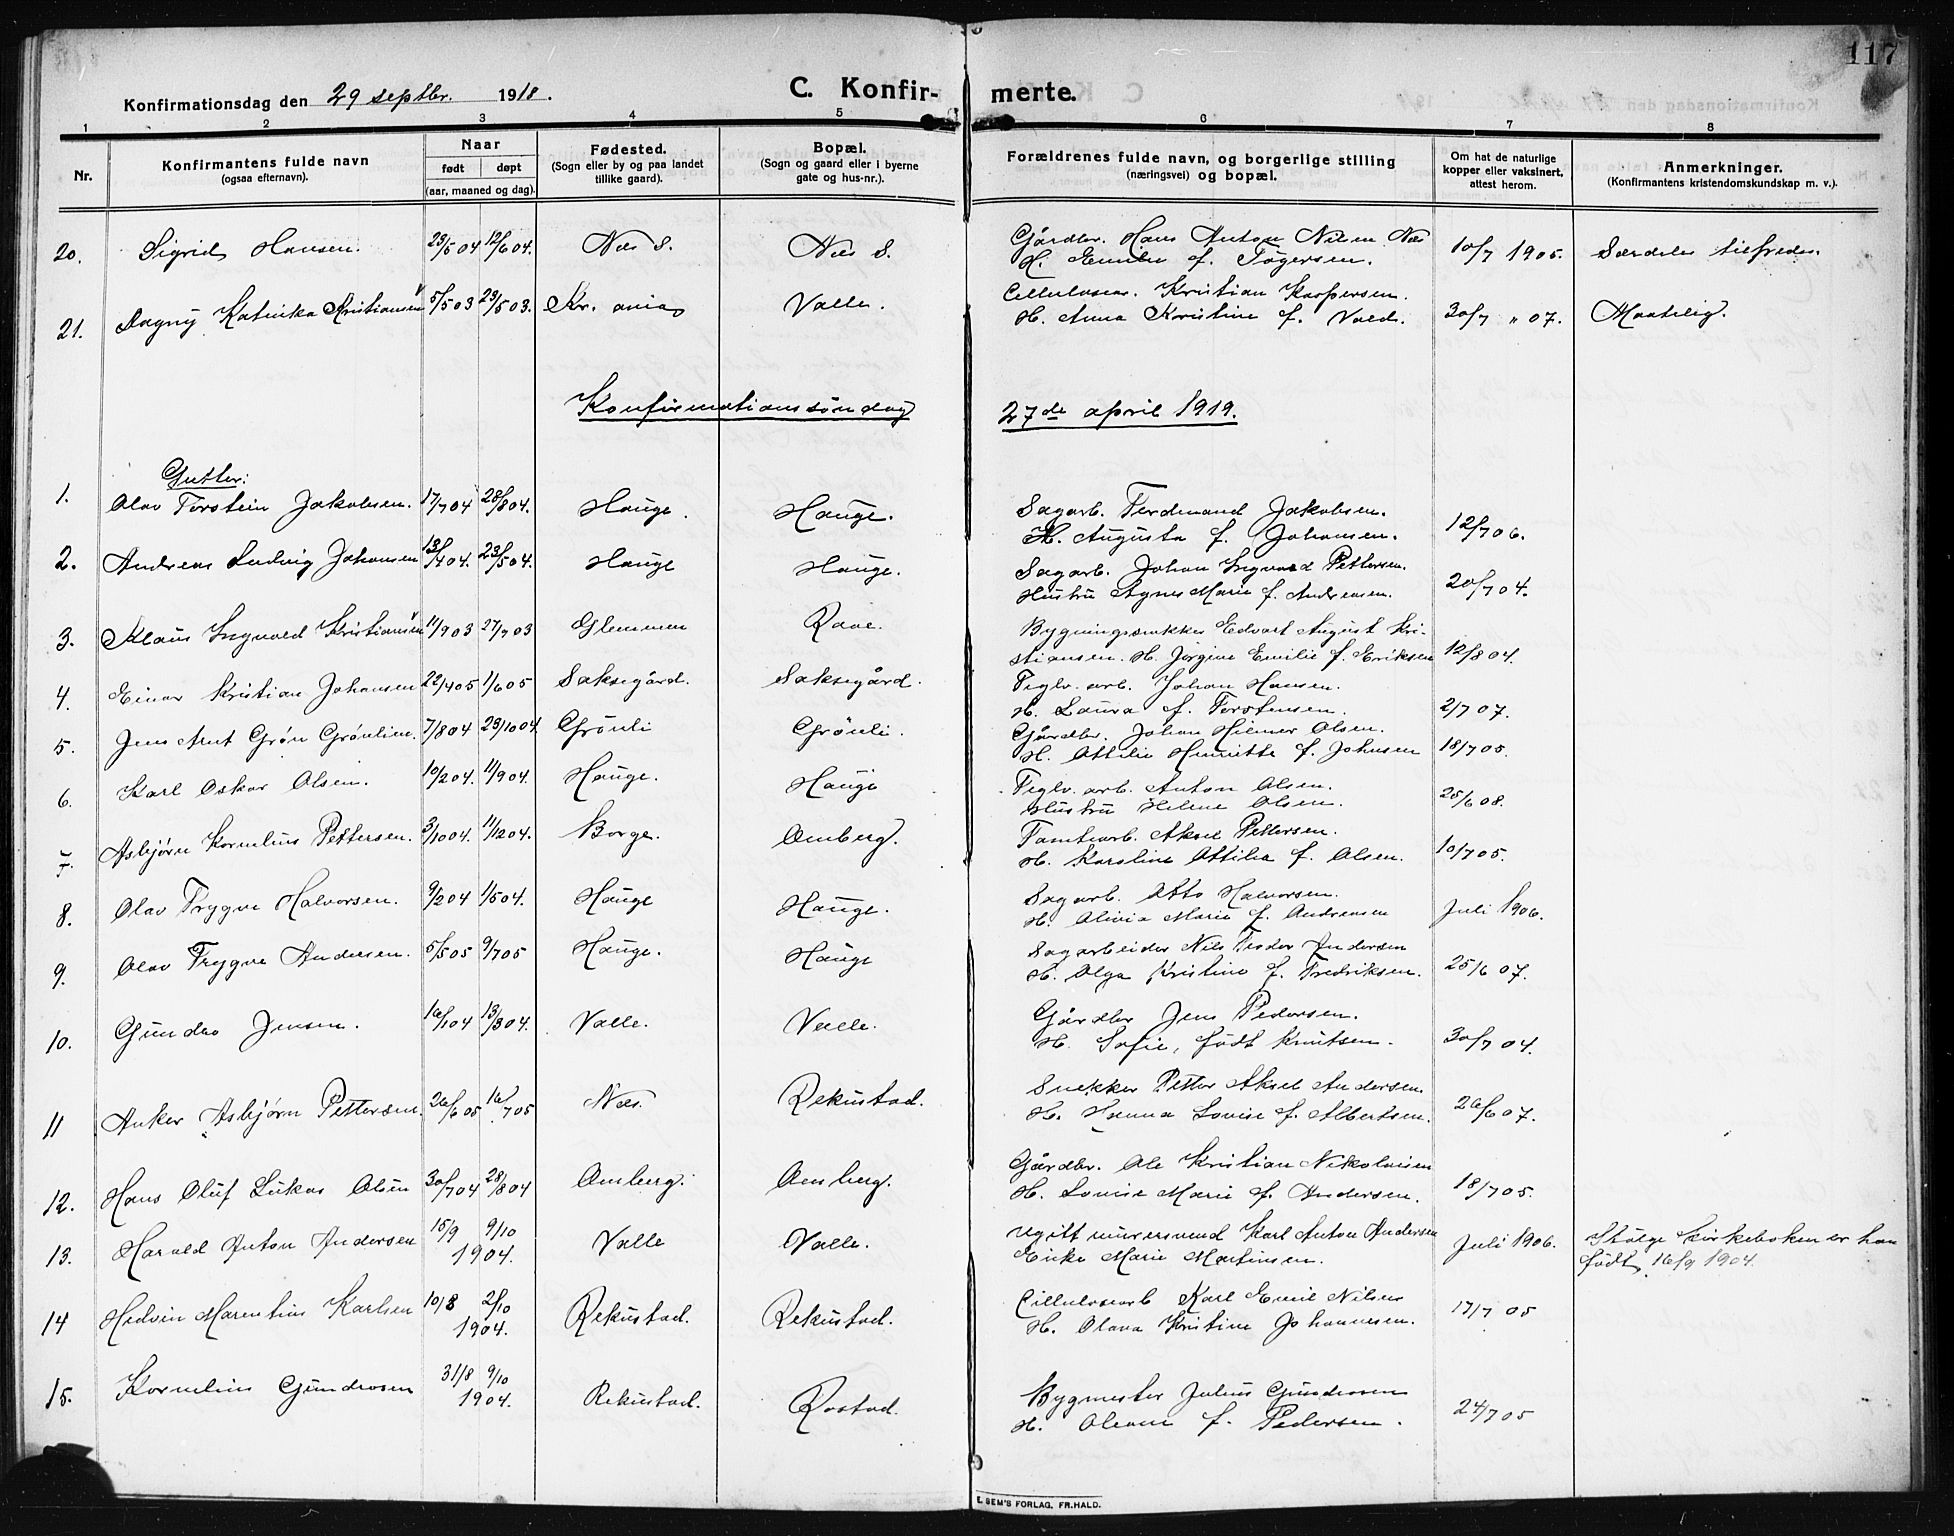 117
Konfirmationsdag den 29 septbr. 1918.
C. Konfirmerte.
1 2 3 4 5 6 7 8
Nr.
Konfirmantens fulde navn
(ogsaa efternavn).
Naar
født døpt
(aar, maaned og dag).
Fødested.
(Sogn eller by og paa landet
tillike gaard).
Bopæl.
(Sogn og gaard eller i byerne
gate og hus-nr.).
Forældrenes fulde navn, og borgerlige stilling
(næringsvei) og bopæl.
Om hat de naturlige
kopper eller vaksinert,
attest herom.
Anmerkninger.
(Konfirmantens kristendomskundskap m. v.).
20. Sigrid Hansen. 23/5 04 12/6 04. Næs S. Næs S. Gårdbr. Hans Anton Nilsen Næs
H. Emilie f. Tøgersen. 10/7 1905. Særdeles tilfreds.
21. Dagny Katinka Kristiansen 5/5 03 29/5 03. Kr.ania Valle. Cellulosear. Kristian Kaspersen.
H. Anna Kristine f. Vold. 30/7 " 07. Maatelig.
Konfirmationssøndag 27de april 1919.
Gutter:
1. Olav Torstein Jakobsen. 17/7 04 28/8 04. Hauge. Hauge. Sagarb. Ferdinand Jakobsen.
H. Augusta f. Johansen. 12/7 06.
2. Andreas Ludvig Johansen 13/4 04. 23/5 04. Hauge Hauge. Sagarb. Johan Ingvard Pettersen.
Hustru Agnes Marie f. Andreasen. 20/7 04.
3. Klaus Ingvald Kristiansen 11/9 03 27/7 03 Glemmen Raae. Bygningssnekker Edvart August Kri-
stiansen. H. Jørgine Emilie f. Eriksen 12/8 04.
4. Einar Kristian Johansen 22/4 05 1/6 05 Saksegård. Saksegård. Teglv. arb. Johan Hansen.
H. Laura f. Torstensen. 2/7 07.
5. Jens Arnt Grøn Grønlien. 7/8 04 23/10 04 Grönli Grönli. Gårdbr. Johan Hilmer Olsen.
H. Attilie Henriette f. Johnsen 18/7 05.
6. Karl Oskar Olsen. 10/2 04. 11/9 04. Hauge. Hauge Teglv. arb. Anton Olsen.
Hustru Helene Olsen. 25/6 08.
7. Asbjørn Kornelius Pettersen. 3/10 04. 11/12 04. Borge. Omberg. Tomtearb. Aksel Pettersen.
H. Karoline Attilie f. Olsen. 10/7 05.
8. Olav Trygve Halvorsen. 9/2 04 1/5 04. Hauge Hauge. Sagarb. Otto Halvorsen.
H. Olivia Marie f. Andreasen Juli 1906.
9. Olav Trygve Andersen. 5/5 05 9/7 05 Hauge. Hauge Sagarbeider Nils Teodor Andersen
H. Olga Kristine f. Fredriksen. 25/6 07.
10. Gundro Jensen. 16/1 04 13/3 04. Valle. Valle. Gårdbr Jens Pedersen.
H. Sofie, født Knutsen. 30/7 04.
11 Anker Asbjørn Pettersen. 26/6 05 16/7 05 Næs. Rekustad. Snekker Petter Aksel Andersen
H. Hanna Lovise f. Albertsen. 26/6 07.
12. Hans Oluf Lukas Olsen 30/7 04 28/8 04 Omberg. Omberg. Gårdbr. Ole Kristian Nikolaisen
H. Lovise Marie f. Andersen. 18/7 05.
13. Harald Anton Andersen 15/9 9/10 1904. Valle Valle. Ugift murersvend Karl Anton Andersen
Erika Marie Martinsen. Juli 1906. Ifölge kirkeboken er han
født 16/9 1904.
14 Hedvin Marentius Karlsen 10/8 2/10 1904. Rekustad. Rekustad. Cellulosearb Karl Emil Nilsen
H. Olava Kristine Johannesen. 17/7 05
15. Kornelius Gundrosen 31/8 9/10 1904. Rekustad. Rostad. Bygmester Julius Gundrosen
H. Oleane f. Pedersen. 24/7 05
E. SEM'S FORLAG, FR.HALD.